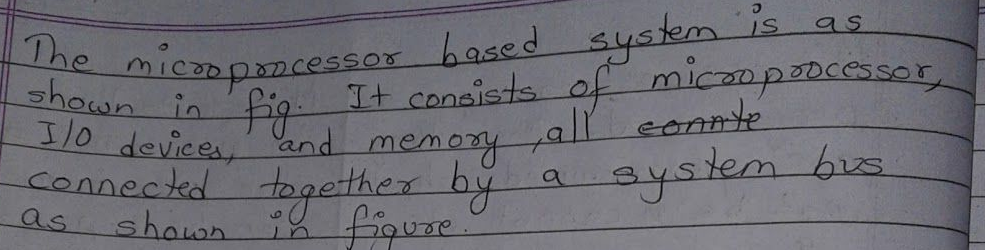 The microprocessor based system is as
shown in fig. It consists of microprocessor,
I/O devices, and memory, all connte
connected together by a system bus
as shown in figure.